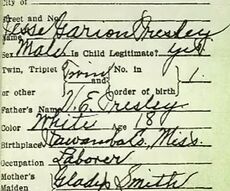 City of
Street and No.
Name Jesse Garion Presley
Sex Male Is Child Legitimate? yes
Twin, Triplet Twin and No. in 1.
or other order of birth
Father's Name V. E. Presley
Color White Age 18
Birthplace Itawamba Co, Miss.
Occupation Laborer
Mother's
Maiden Gladys Smith